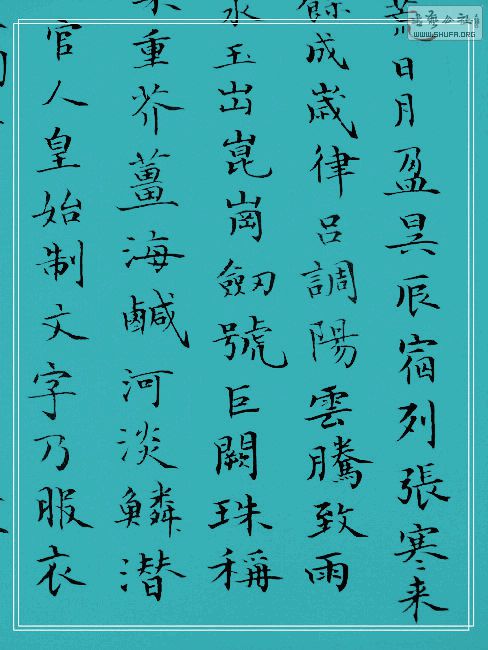 荒日月盈昃辰宿列張寒来
餘成歲律呂調陽雲騰致雨
水玉出崑崗劒號巨闕珠稱
重芥薑海鹹河淡鱗潜
官人皇始制文字乃服衣
WWW.SHUFA.ORG